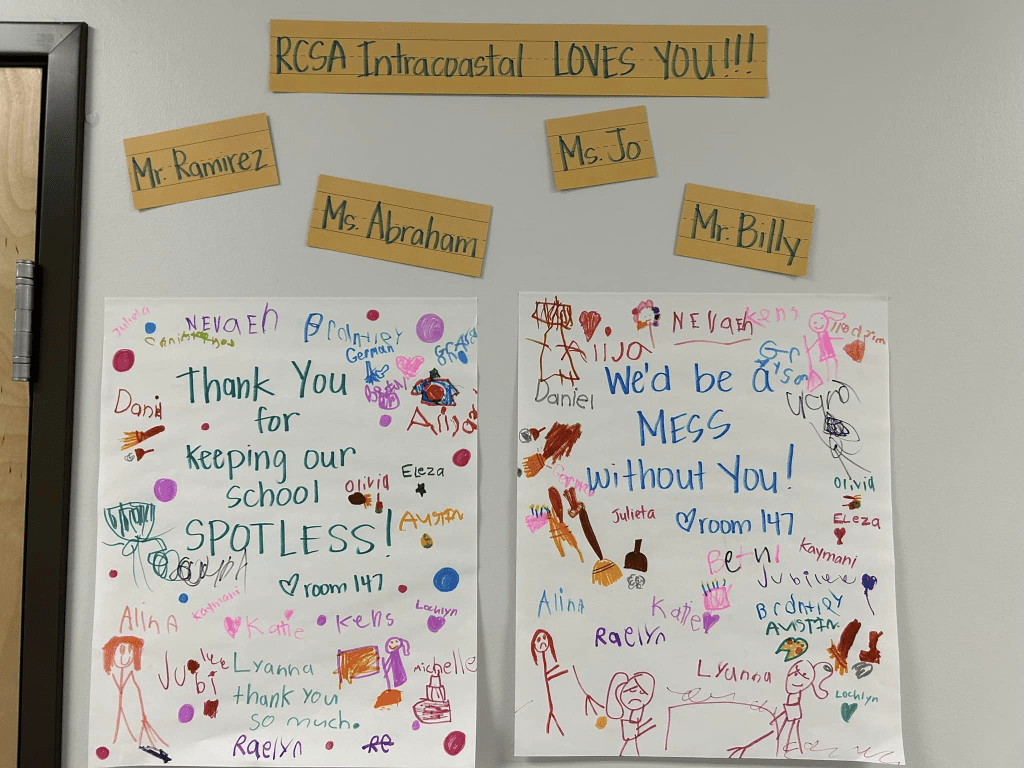 RCSA Intracoastal LOVES YOU!!!
Mr. Ramirez
Ms. Abraham
Ms. Jo
Mr. Billy
Julieta
NEVAEH
Brantley
German
Thank You
for
keeping our
school
SPOTLESS!
♡room 147
Dani
Alija
Olivia
ELEZA
AUSTIN
Alina
Kaymani
Katie
Kens
Lochlyn
Jubilee
Lyanna
thank you
so much.
Michelle
Raelyn
RE
NEVAEH
Kens
Alija
Daniel
We'd be a
MESS
without You!
♡room 147
Julieta
Olivia
ELEZA
Kaymani
Jubilee
Brantley
AUSTIN
Alina
Katie
Raelyn
Lyanna
Lochlyn